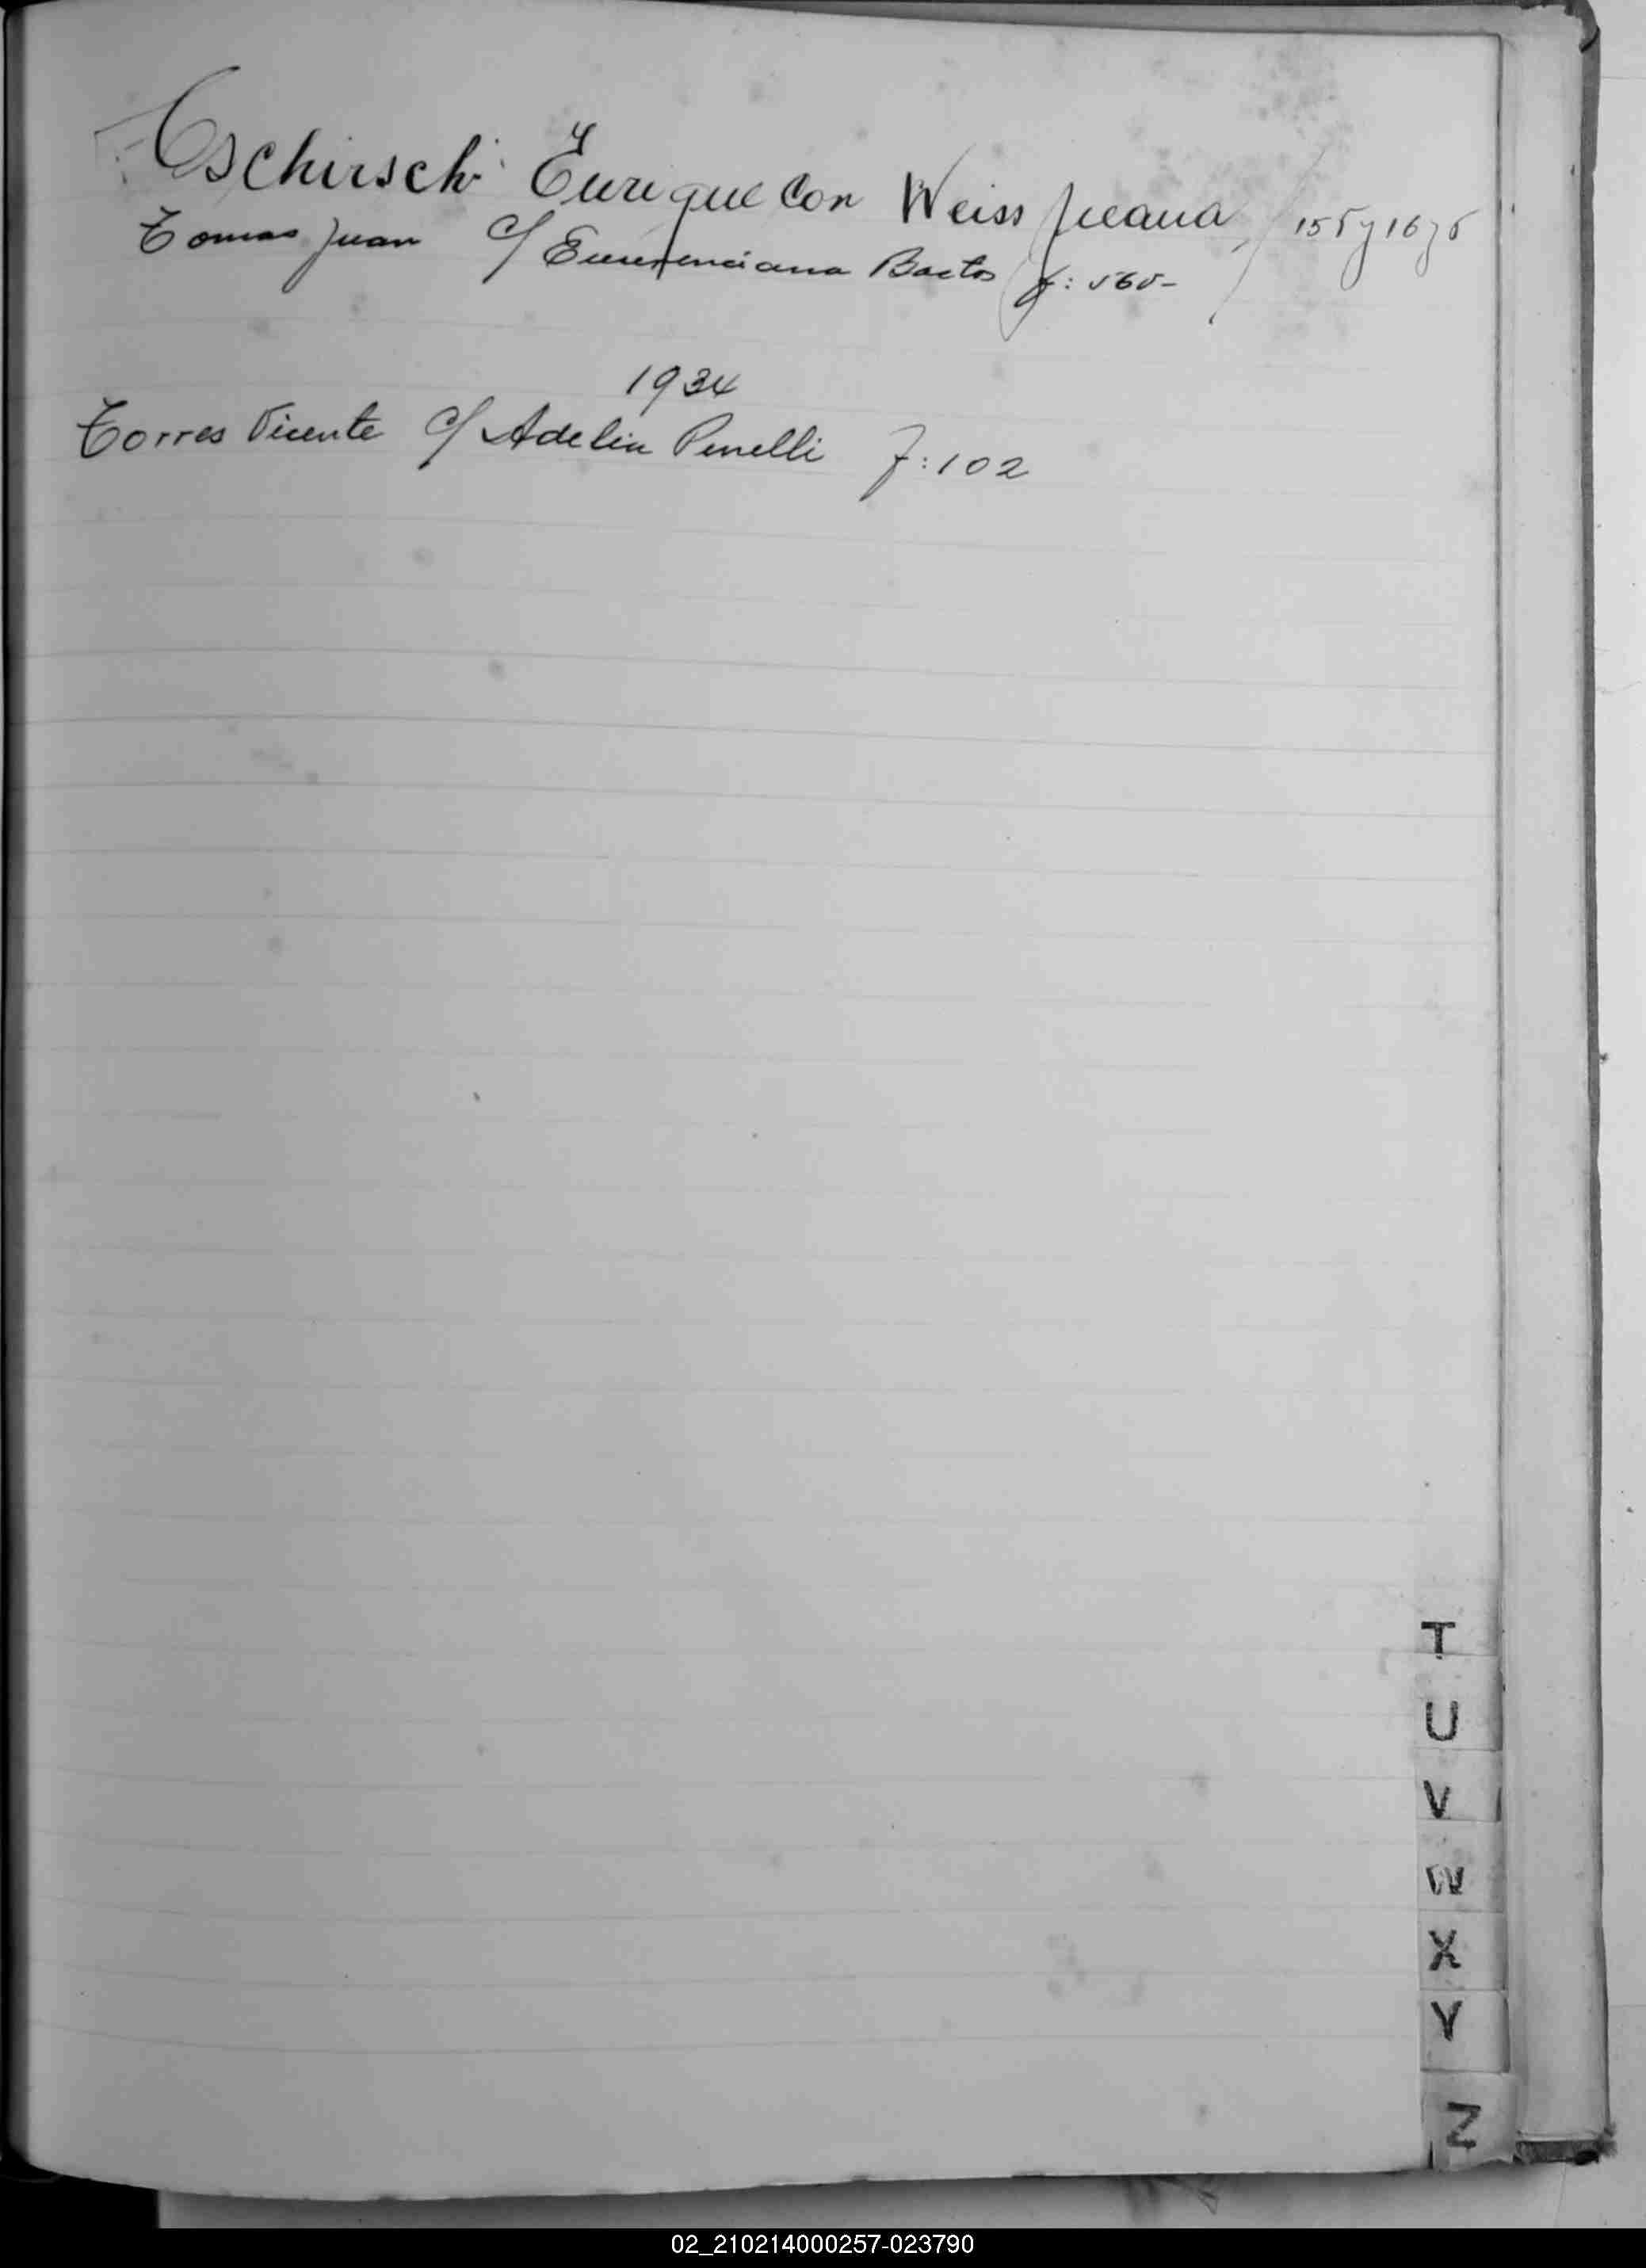 Tschirsch Enrique Con Weiss Juana / 155 y 1676
Tomas Juan c/ Bactos f: 565-
1934
Torres Vicente c/ Adelin Penelli f: 102
T
U
V
W
X
Y
Z
02_210214000257-023790